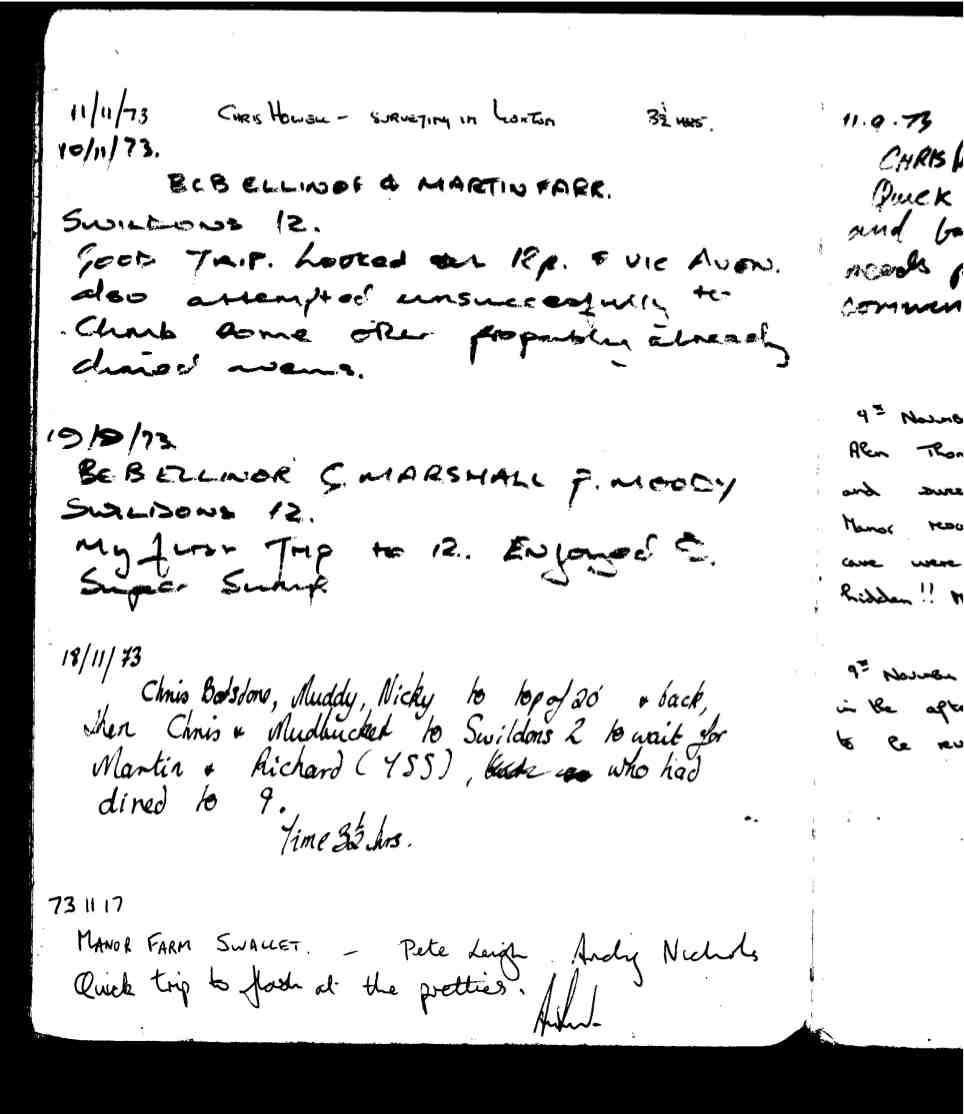 11/11/73 CHRIS HOWELL - SURVEYING IN LOXTON 3½ HRS.
10/11/73.
BOB ELLINOR & MARTIN FARR.
SWILDONS 12.
GOOD TRIP. Looked at 12p. & VIC AVEN.
also attempted unsuccessfully to
Climb some other propably already
climed avens.
19/ /73
BOB ELLINOR C. MARSHALL P. MOODY
SWILDONS 12.
My first Trip to 12. Enjoyed
Super Sump
18/11/73
Chris Batstone, Muddy, Nicky to top of 20' & back,
then Chris & Mudbucket to Swildons 2 to wait for
Martin & Richard (YSS), who had
dived to 9.
Time 3½ hrs.
73 11 17
MANOR FARM SWALLET. - Pete Leigh Andy Nichols
Quick trip to flash at the pretties.
CHRIS
Quick
and
needs
commen
9th Novemb
Alan Thom
and
Manor
cave were
hidden!!
9th Novemb
in the afte
to be